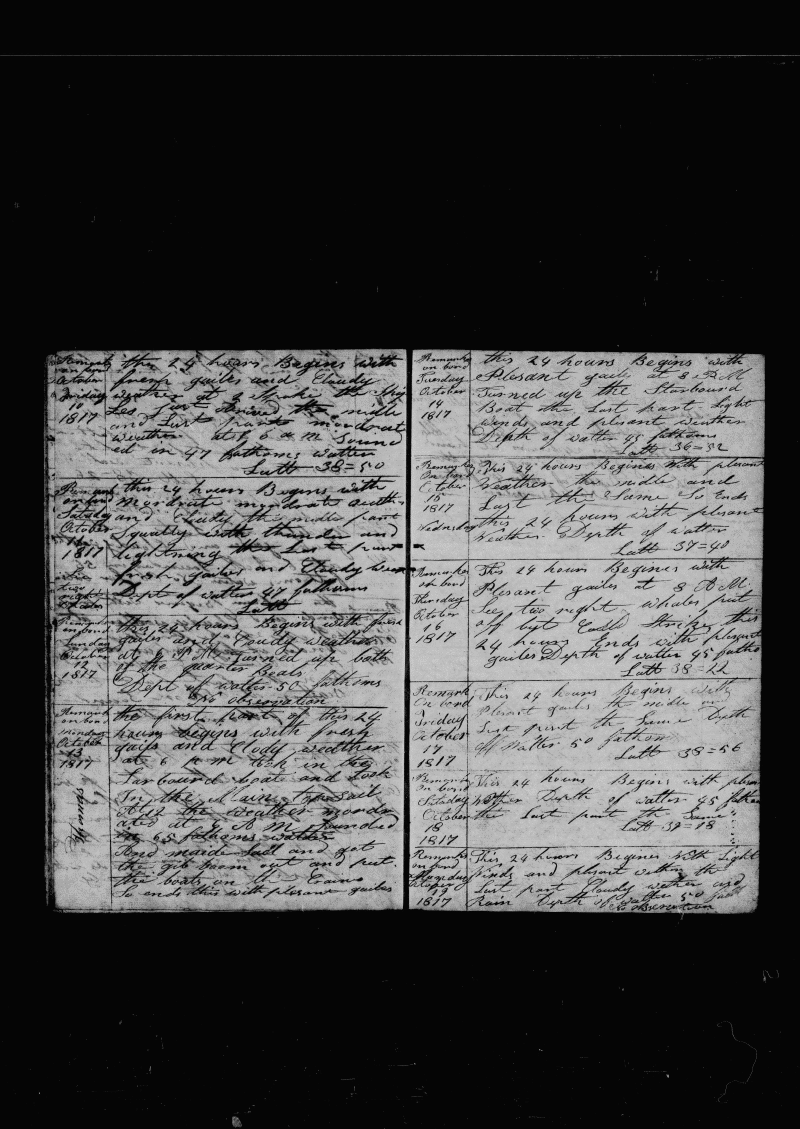 Remark
on bord
October
Friday
10
1817
this 24 hours Begins with
fresh gailes and Cloudy
weather at 4 strake the
the middle
and Last parts mordrat
weather at 6 a m Sound
ed in 47 fathoms watter
Latt 36=50
Remark
on bord
Satuday
October
11
1817
two
right
whales
this 24 hours Begins with
mordrat mordrate weath
and Cloudy the middle part
Squally with thunder and
lightning the Last part
fresh gailes and Cloudy
Dept of watter 47 fathoms
Latt
Remark
on bord
Sunday
October
12
1817
this 24 hours Begins with fresh
gailes and Cloudy weather
at P M turned up both
of the quarter Boats
Dept of watter 50 fathoms
No observation
Remark
on bord
Monday
October
13
1817
the first part of this 24
hours begins with fresh
gails and Clody weather
at 6 p m tok in the
Larbound boate and took
In the Main topsail
the weather mordr
ated at A M Sounded
in 65 fathoms watter
And made Sail and got
the gib boom out and put
the boats on the Crains
So ends this with plesant gailes
Remarks
on bord
Tuesday
October
14
1817
this 24 hours Begins with
Plesant gaile at P M
Turned up the Starbound
Boat the Last part Light
winds and plesent weather
Depth of watter 45 fathoms
Latt 36=52
Remarks
On bord
October
15
1817
Wednesday
This 24 hours Begines With plesent
Weather the middle and
Last the Same So Ends
this 24 hours with plesant
Weather Depth of watter
Latt 37=40
Remarks
on bord
Thursday
October
16
1817
This 24 hours Begines with
Plesent gailes at 8 A M
See two right whales put
off but Could Strike this
24 hours Ends with plesent
gailes Depth of watter 45 fatho
Latt 38=22
Remark
On bord
Friday
October
17
1817
This 24 hours Begins with
Plesant gailes the middle and
Last part the Same Depth
off Watter 50 fathom
Latt 38=56
Remarks
On bord
Satuday
October
18
1817
This 24 hours Begins with plesent
Wether Depth of watter 45 fathom
the Last part the Same
Latt 39=18
Remarks
on bord
October
19
1817
This 24 hours Begines With Light
Winds and plesant wether the
Last part Cloudy wether and
Rain Depth of watter 50 fath
No observation